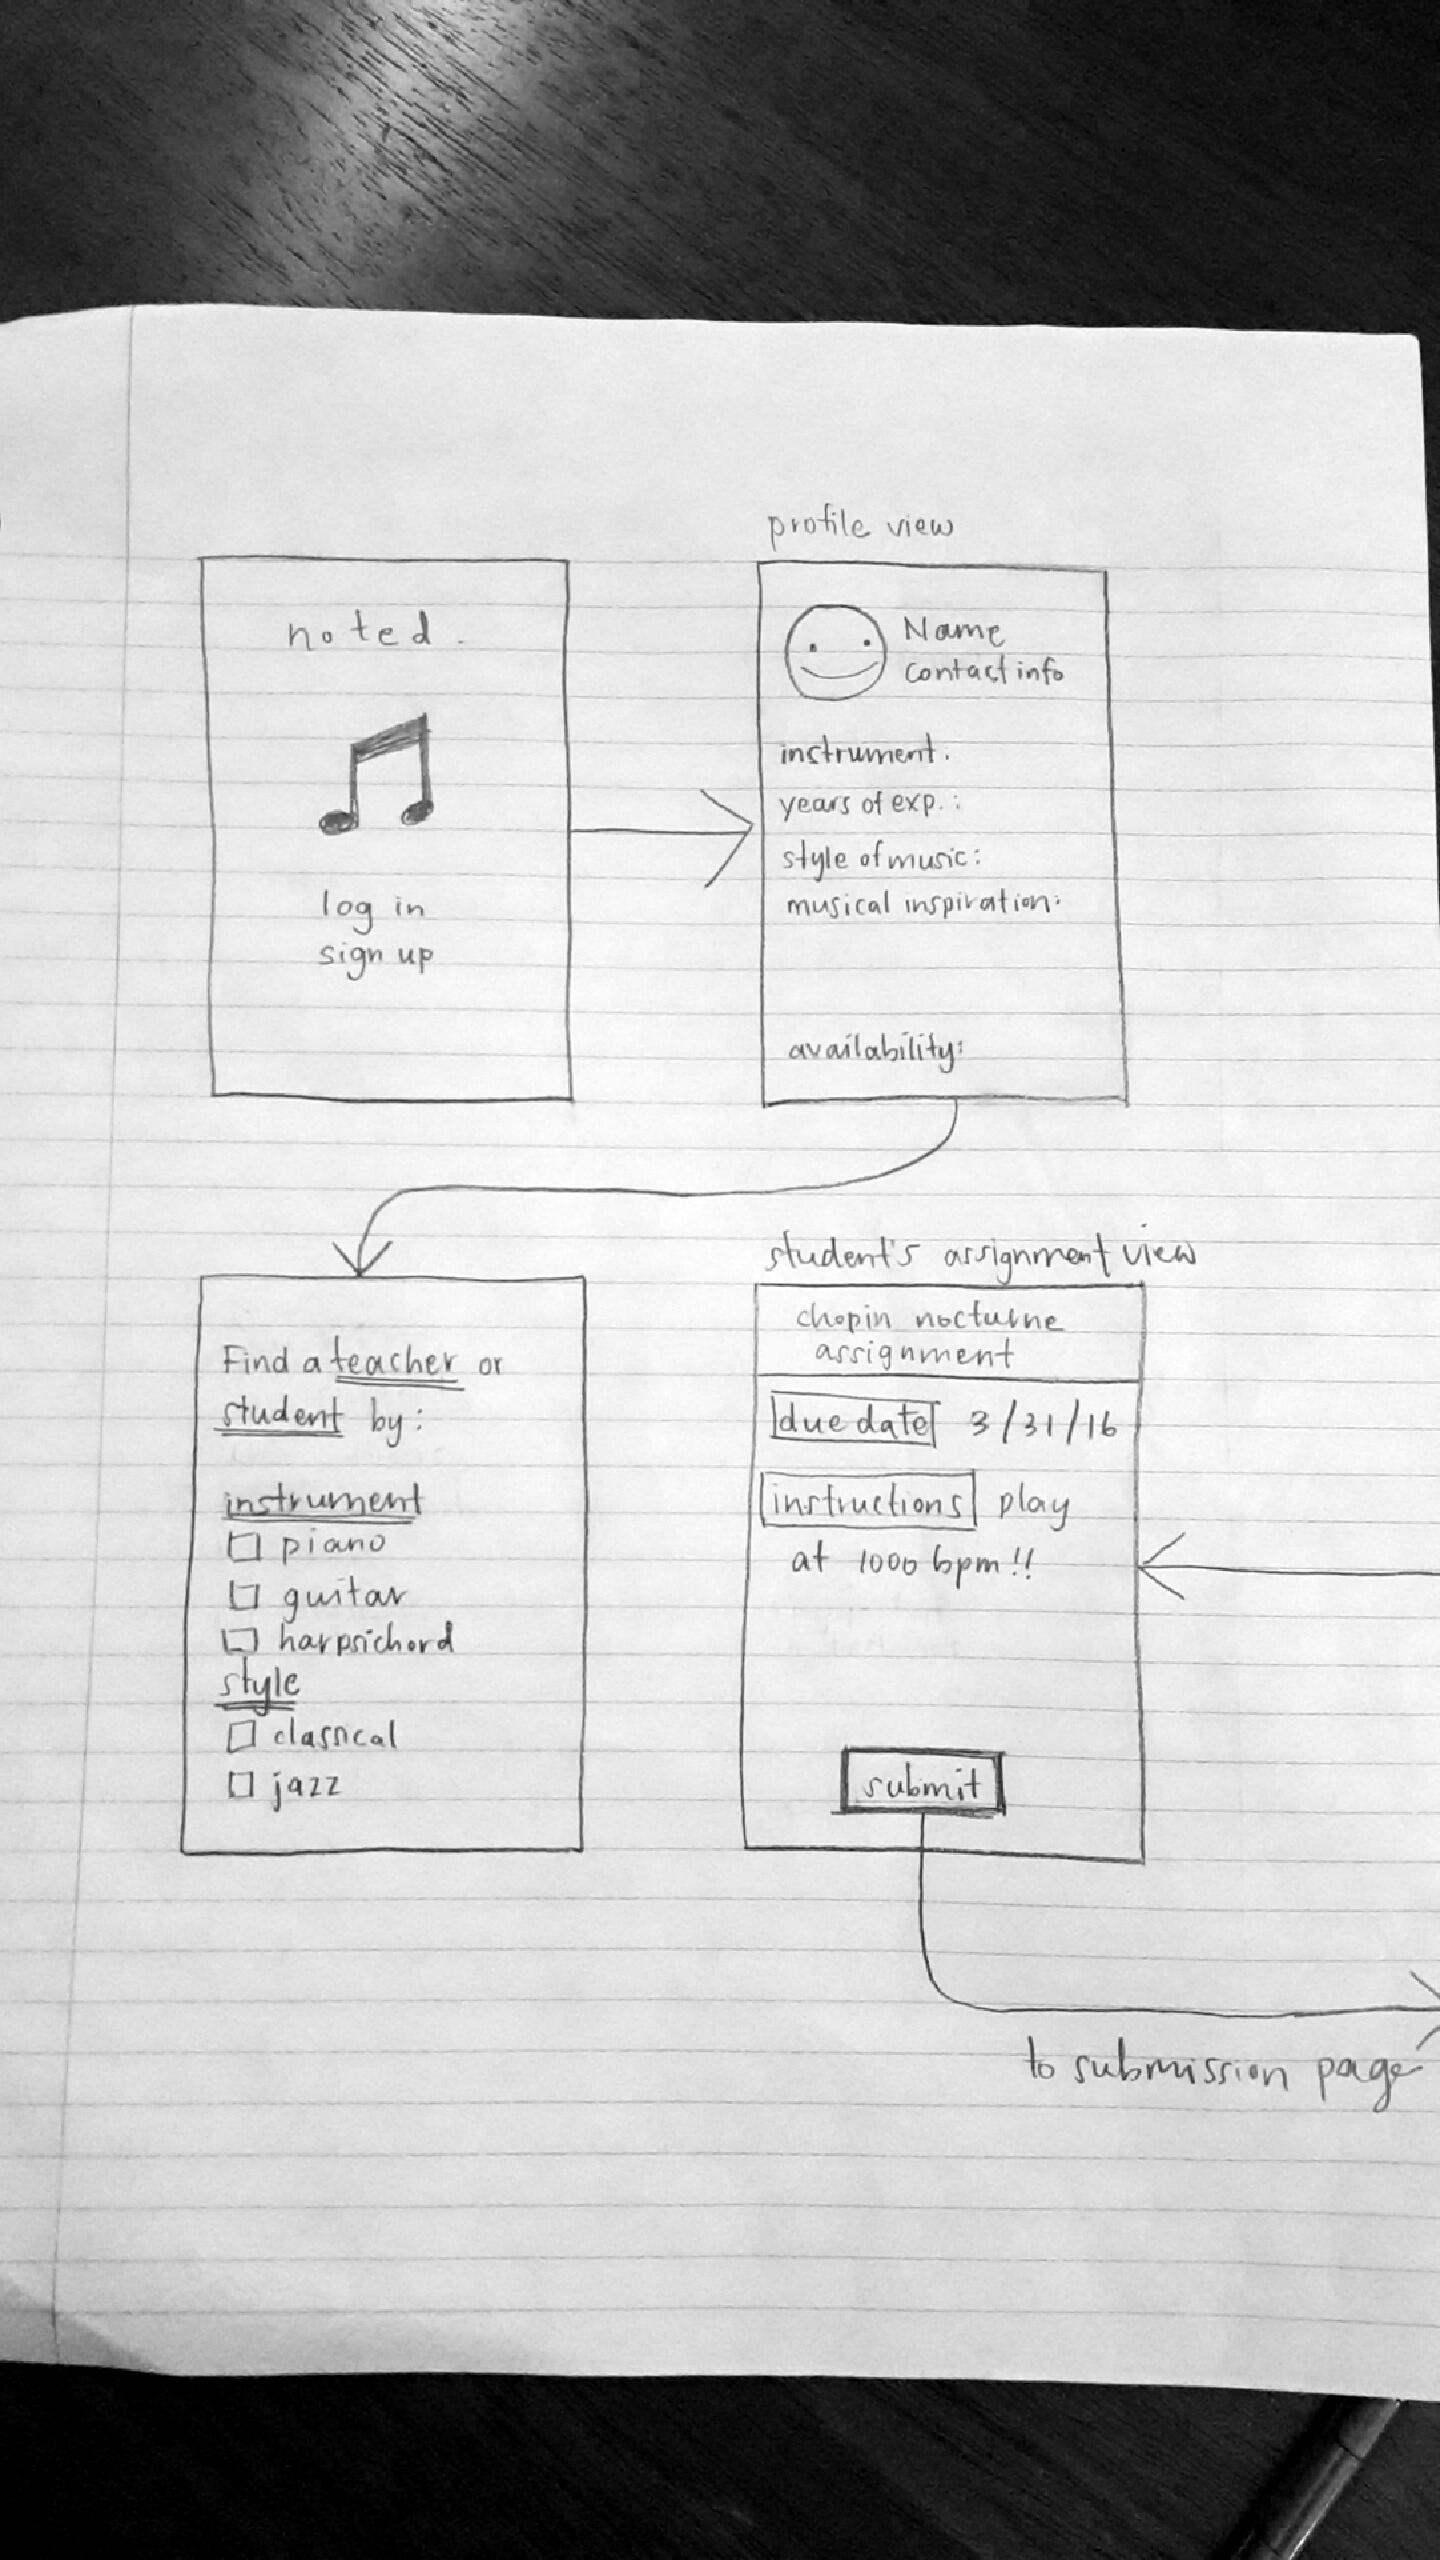 noted.
log in
sign up
profile view
Name
contact info
instrument:
years of exp.:
style of music:
musical inspiration:
availability:
Find a teacher or
student by:
instrument
piano
guitar
harpsichord
style
classical
jazz
student's assignment view
chopin nocturne
assignment
due date 3/31/16
instructions play
at 1000 bpm!!
submit
to submission page